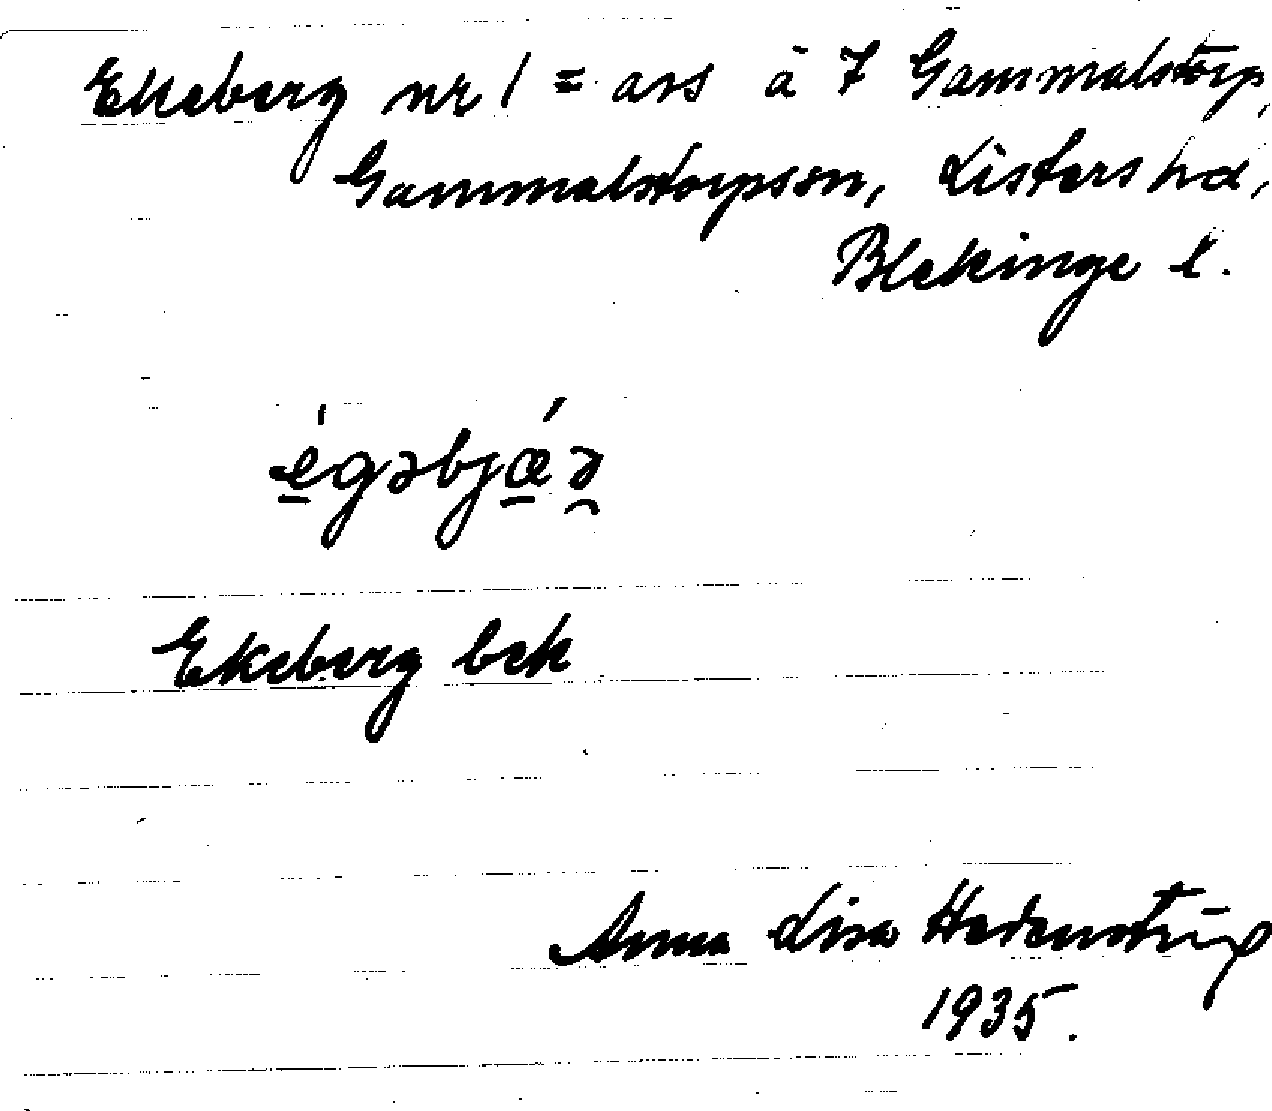 Ekeberg nr 1 = ars å 7 Gammalstorp,
Gammalstorpssn, Listers hd,
Blekinge l.
égəbjǽə̯
Ekeberg bek
Anna Lisa Hedenstrüp
1935.